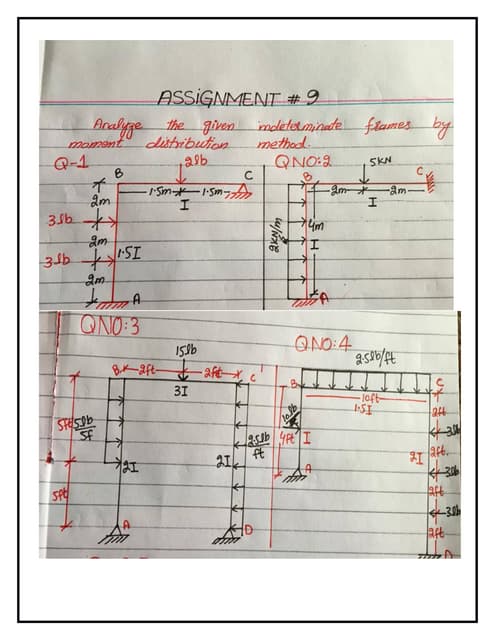 ASSIGNMENT # 9
Analyze the given indeterminate frames by
moment distribution method.
Q-1
2lb
B
C
1.5m
1.5m
I
2m
3lb
2m
3lb
1.5I
2m
A
QNO:2
5KN
B
C
2m
2m
I
4m
2KN/m
I
A
QNO:3
15lb
B
2ft
2ft
C
3I
5ft
2I
2I
2.5lb
ft
5ft
A
D
QNO:4
2.5lb/ft
B
C
10ft
1.5I
10lb
4ft
I
A
2ft
3lb
2I
2ft.
3lb
2ft
3lb
2ft
D